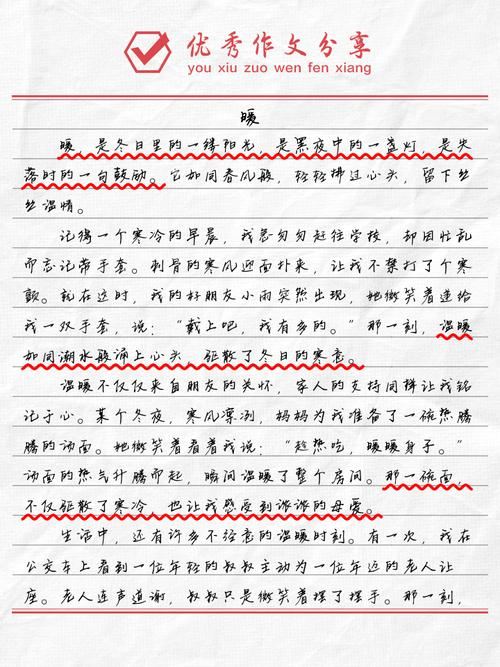 优秀作文分享
you xiu zuo wen fen xiang
暖
暖，是冬日里的一缕阳光，是黑夜中的一盏灯，是失
落时的一句鼓励。它如同春风般，轻轻拂过心头，留下丝
丝温情。
记得一个寒冷的早晨，我急匆匆赶往学校，却因忙乱
而忘记带手套。刺骨的寒风迎面扑来，让我不禁打了个寒
颤。就在这时，我的好朋友小雨突然出现，她微笑着递给
我一双手套，说：“戴上吧，我有多的。”那一刻，温暖
如同潮水般涌上心头，驱散了冬日的寒意。
温暖不仅仅来自朋友的关怀，家人的支持同样让我铭
记于心。某个冬夜，寒风凛冽，妈妈为我准备了一碗热腾
腾的汤面。她微笑着看着我说：“趁热吃，暖暖身子。”
汤面的热气升腾而起，瞬间温暖了整个房间。那一碗面，
不仅驱散了寒冷，也让我感受到浓浓的母爱。
生活中，还有许多不经意的温暖时刻。有一次，我在
公交车上看到一位年轻的叔叔主动为一位年迈的老人让
座。老人连声道谢，叔叔只是微笑着摆了摆手。那一刻，